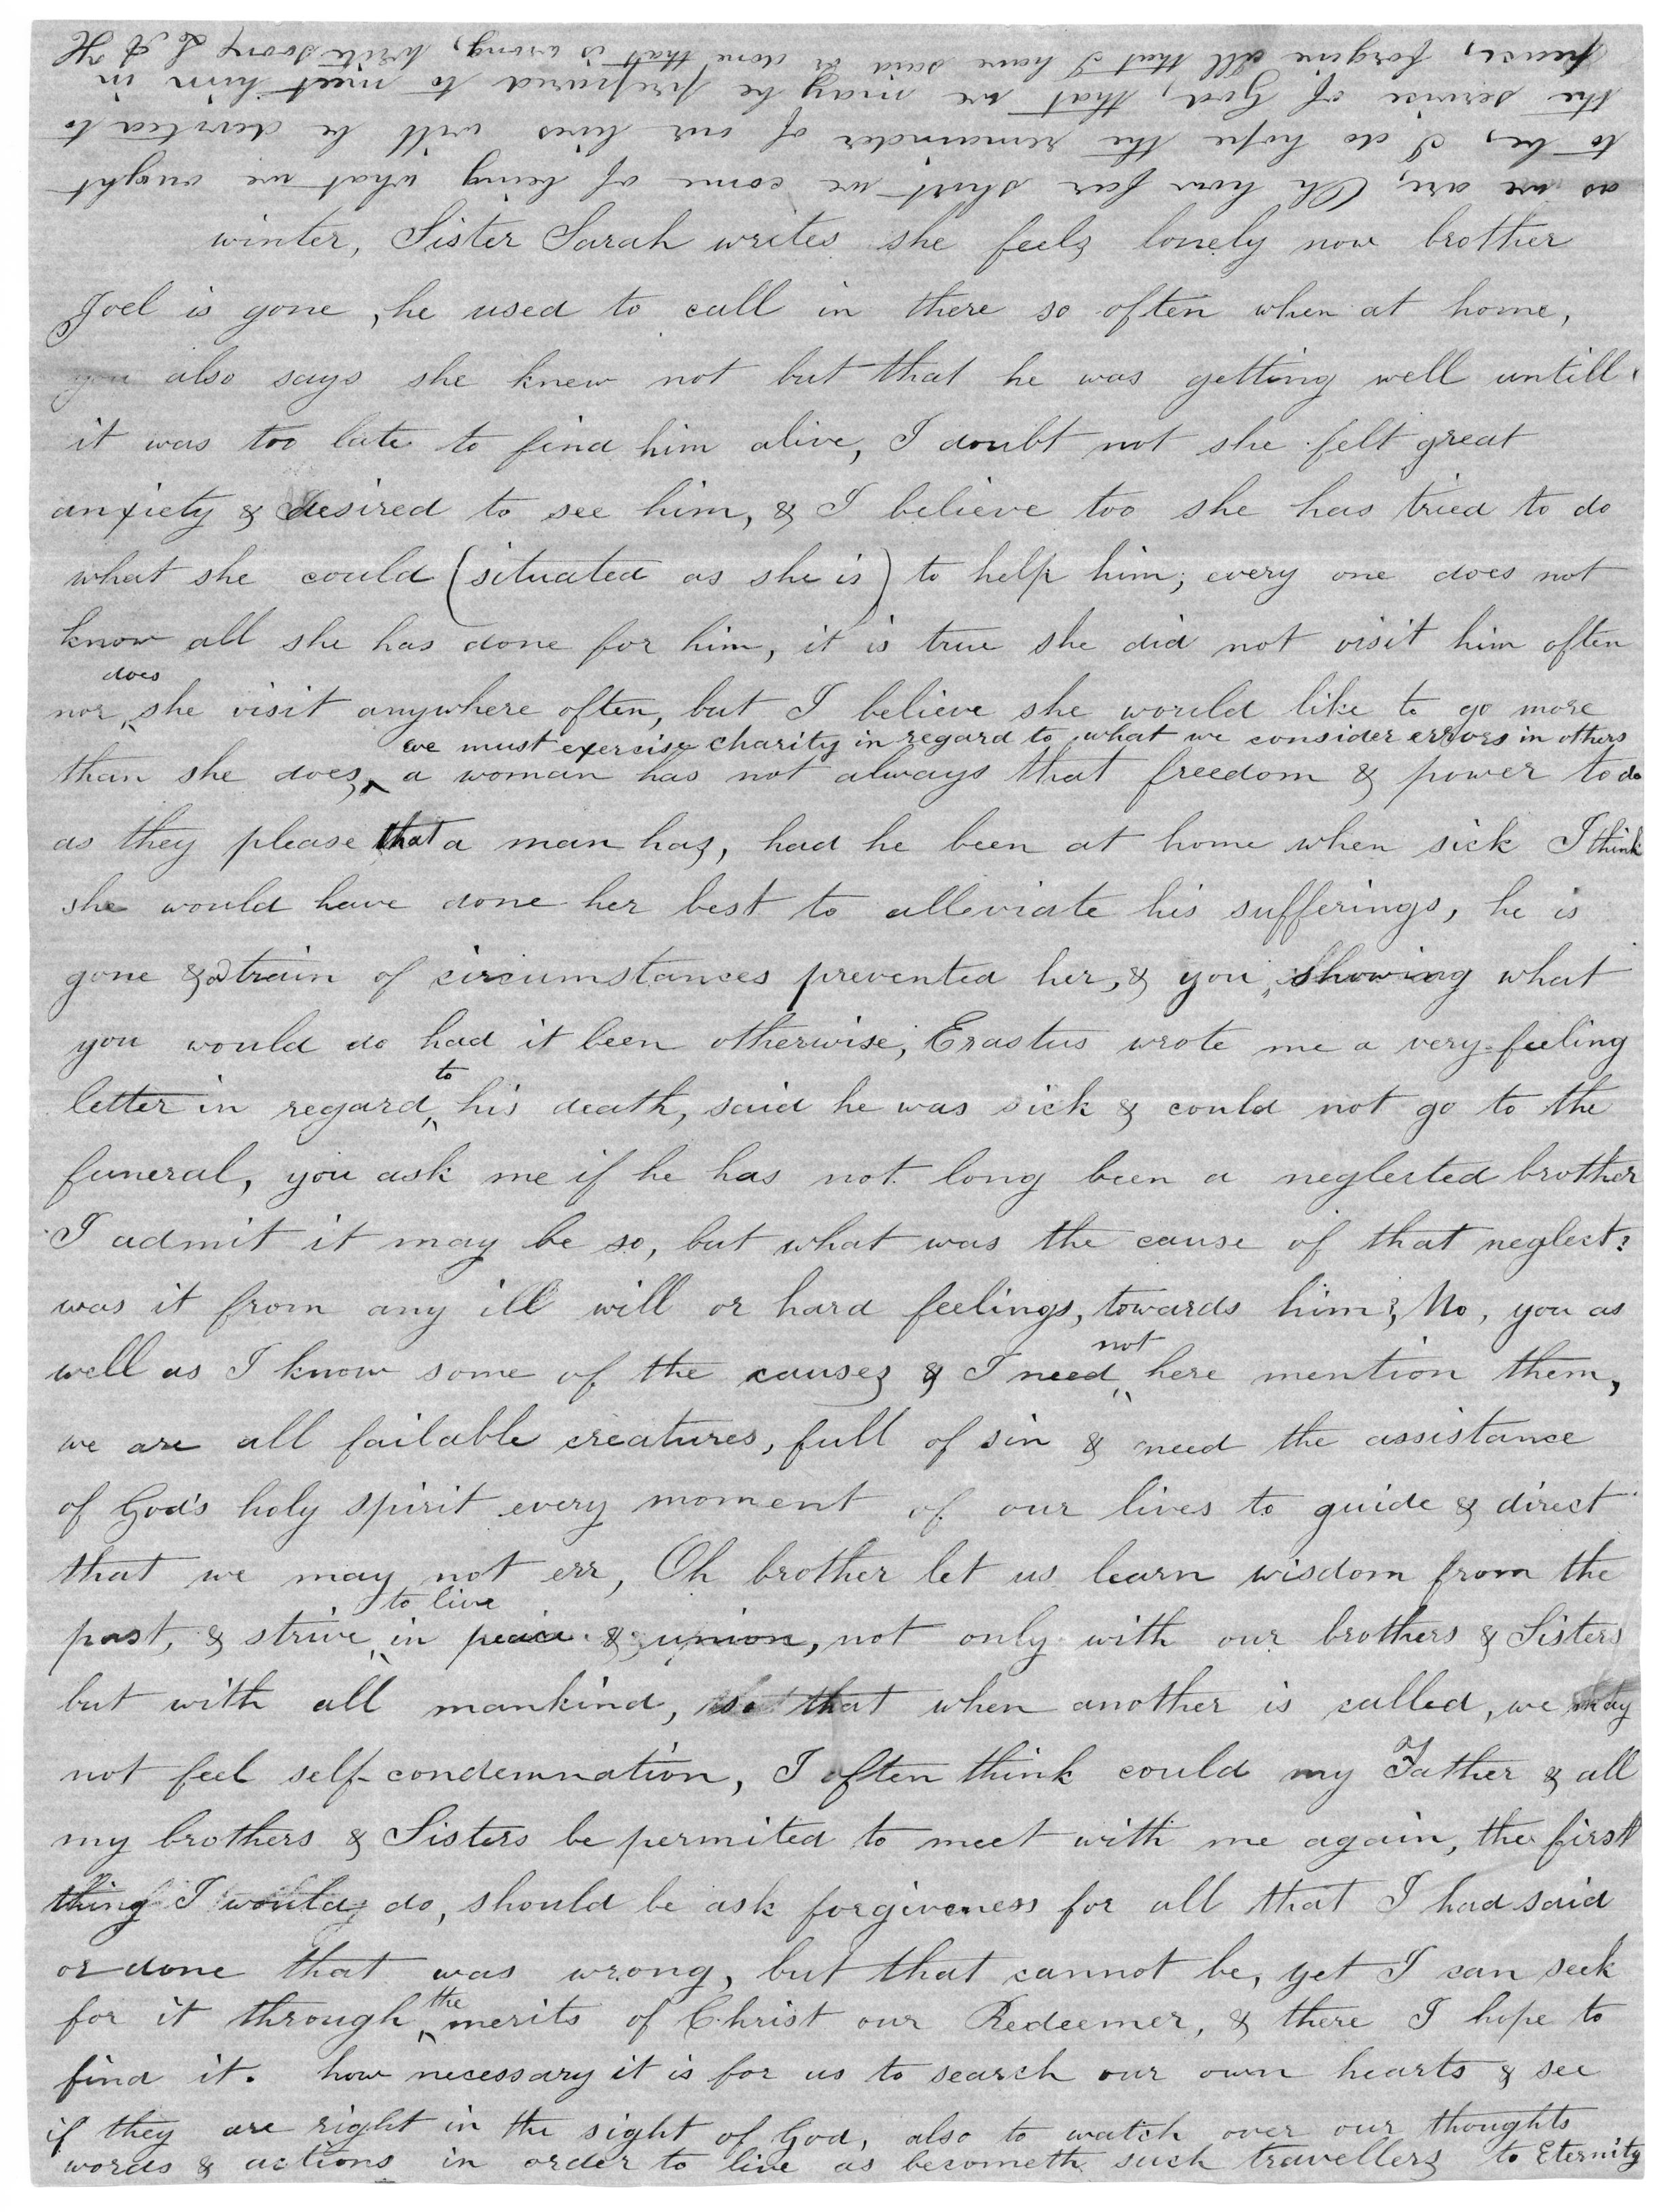 winter, Sister Sarah writes she feels lonely now brother
Joel is gone, he used to call in there so often when at home,
you also says she knew not but that he was getting well untill
it was too late to find him alive, I doubt not she felt great
anxiety & desired to see him, & I believe too she has tried to do
what she could (situated as she is) to help him; every one does not
know all she has done for him, it is true she did not visit him often
does
nor she visit anywhere often, but I believe she would like to go more
we must exercise charity in regard to what we consider errors in others
than she does, a woman has not always that freedom & power to do
as they please that a man has, had he been at home when sick I think
she would have done her best to alleviate his sufferings, he is
gone & a train of circumstances prevented her, & you, showing what
you would do had it been otherwise, Erastus wrote me a very feeling
to
letter in regard his death, said he was sick & could not go to the
funeral, you ask me if he has not long been a neglected brother
I admit it may be so, but what was the cause of that neglect?
was it from any ill will or hard feelings, towards him? No, you as
not
well as I know some of the causes & I need here mention them,
we are all failable creatures, full of sin & need the assistance
of God's holy spirit every moment of our lives to guide & direct
that we may not err, Oh brother let us learn wisdom from the
to live
past, & strive in peace & union, not only with our brothers & Sisters
but with all mankind, so that when another is called, we may
not feel self-condemnation, I often think could my Father & all
my brothers & Sisters be permited to meet with me again, the first
thing I would do, should be ask forgiveness for all that I had said
or done that was wrong, but that cannot be, yet I can seek
the
for it through merits of Christ our Redeemer, & there I hope to
find it. how necessary it is for us to search our own hearts & see
if they are right in the sight of God, also to watch over our thoughts
words & actions in order to live as becometh such travellers to Eternity
as we are, Oh how far short we come of being what we ought
to be, I do hope the remainder of our lives will be devoted to
the servise of God, that we may be prepared to meet him in
peace, forgive all that I have said or done that is wrong, write soon, L A H